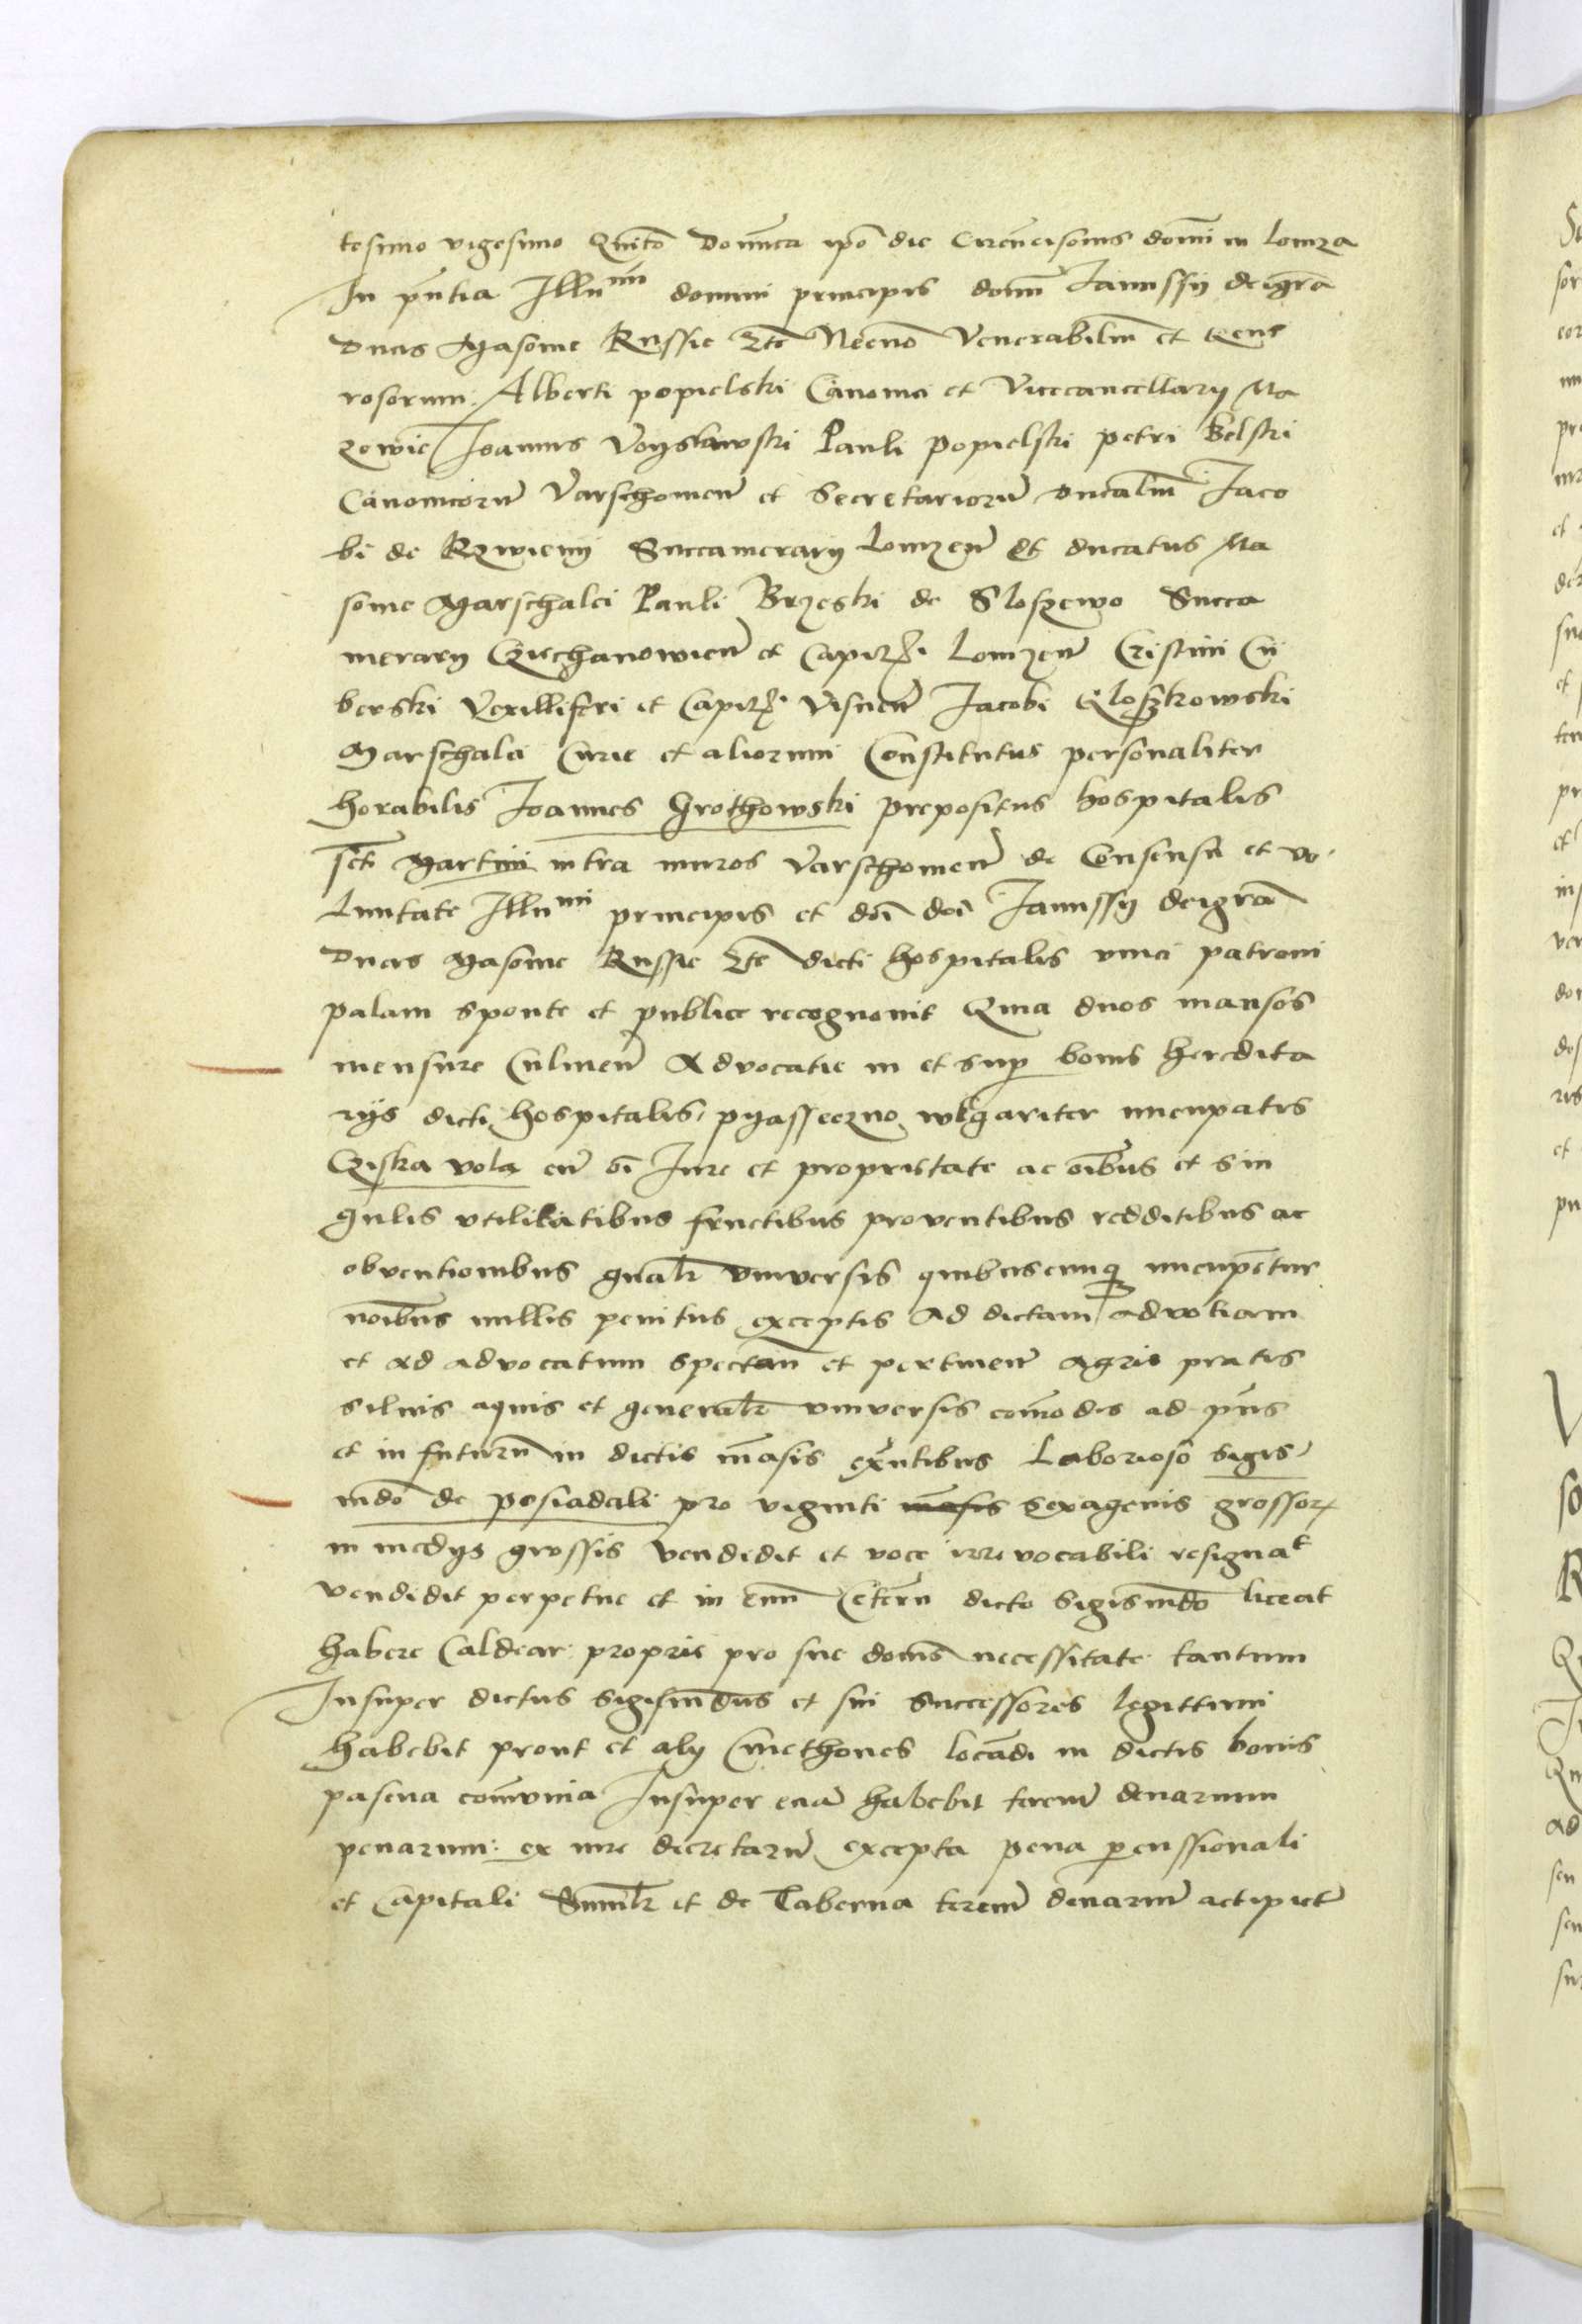 tesimo vigesimo Quĩto Domĩca ipõ die Circũcisonis domĩ in Lomza
In pñtia Illu^mi domini principis domĩ Janussÿ dei grã
Ducis Masoviẽ Russie Etc̃ Necnõ Venerabiliũ et Gene
rosorum. Alberti popielski Canonici et Vicecancellarÿ Ma
zovie Joannis Voÿslawski Pauli Popielski petri Belski
Canonicorũ Varschovieñ et Secretariorũ Ducaliũ Jaco
bi de Rzwienÿ Succamerarÿ Lomzeñ Et ducatus Ma
sovie Marschalci Pauli Brzeski de Sloszewo Succa
merarÿ Cziechanowieñ et Capit. Lomzeñ Cristini Cii
berski Vexilliferi et Capit. Visneñ Jacobi Kloszkowski
Marschalci Curie et aliorum Constitutus personaliter
Horabilis Joannes Grothowski prepositus hospitalis
sc̃ti Martini intra muros Varschovieñ de Consensu et vo
luntate Illu^mi principis et dñi dñi Janussÿ dei grã
Ducis Masovie Russie Etc̃ dicti hospitalis vnici patroni
palam sponte et publice recognovit Quia duos mansos
mensure Culmeñ Advocatie in et sup bonis heredita
rÿs dicti hospitalis, pÿasseczno wlgariter nuncupatis
Cziska vola cũ oĩ Jure et proprietate ac oĩbus et sin
gulis vtilitatibus fructibus proventibus redditibus ac
obventionibus gñalr̃ vniversis quibuscunq nuncupẽtur
noĩbus nullis penitus exceptis Ad dictam advotiam
et ad advocatum spectañ et pertineñ agris pratis
silvis aquis et generalr̃ vniversis cõmodis ad pñs
et in futurũ in dictis mãsis exñtibus Laborioso Sigis
mũdo de posiadali pro viginti mãsis sexagenis grossor
in medÿs grossis vendidit et voce irrevocabili resignat
vendidit perpetue et in evũ Ceterũ dicto Sigismũdo liceat
habere Caldear propriẽ pro sue domũs necessitate tantum
Insuper dictus Sigismũdus et sui Successores legittimi
habebit prout et alÿ Cmethones locãdi in dictis bonis
pascua cõmvnia Insuper eciã habebit terciũ denarium
penarum ex iure decretarũ excepta pena percussionali
et Capitali Similr̃ et de Taberna terciũ denariũ accipiet